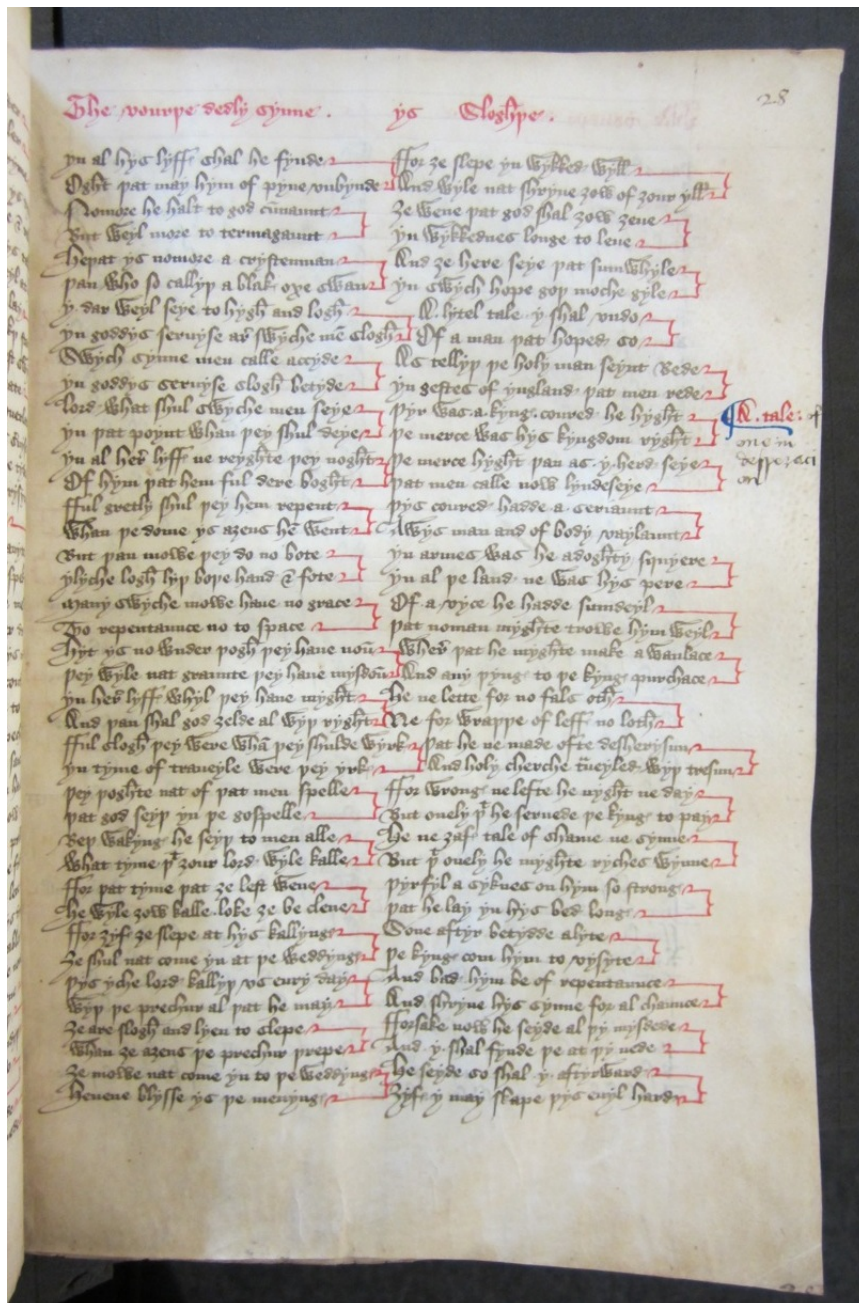 The vourþe dedly synne . ys Sloghþe .
28
yn al hys lyff shal he fynde
Oght þat may hym of pyne vnbynde
Nomore he halt to god cūnaunt
But weyl more to termagaunt
he þat ys nomore a crystenman
þan who so callyþ a blak oxe swan
y dar weyl seye to hygh and logh
yn goddys seruyse ar swyche mē slogh
Swych synne men calle accyde
yn goddys seruyse slogh betyde
lord what shul swyche men seye
yn þat poynt whan þey shul deye
yn al her lyff ne reyghte þey noght
Of hym þat hem ful dere boght
fful gretly shul þey hem repent
whan þe dome ys aȝens hē went
But þan mowe þey do no bote
ylyche logh lyþ boþe hand & fote
many swyche mowe haue no grace
To repentaunce no to space
hyt ys no wnder þogh þey haue noū
þey wyle nat graunte þey haue mysdoū
yn her lyff whyl þey haue myght
And þan shal god ȝelde al wyþ ryght
fful slogh þey were whā þey shulde wyrk
yn tyme of traueyle were þey yrk
þey þoghte nat of þat men spelle
þat god seyþ yn þe gospelle
Beþ wakyng he seyþ to men alle
what tyme þᵗ ȝour lord wyle kalle
ffor þat tyme þat ȝe lest wene
he wyle ȝow kalle . loke ȝe be clene
ffor ȝyf ȝe slepe at hys kallyng
ȝe shul nat come yn at þe weddyng
þys yche lord kallyþ vs eury day
wyþ þe prechur al þat he may
ȝe are slogh and lyen to slepe
whan ȝe aȝens þe prechur þrepe
ȝe mowe nat come yn to þe weddyng
heuene blysse ys þe menyng
ffor ȝe slepe yn wykked wyll
And wyle nat shryue ȝow of ȝour yll
ȝe wene þat god shal ȝow ȝeue
yn wykkednes longe to leue
And ȝe here seye þat sumwhyle
yn swych hope goþ moche gyle
A lytel tale y shal vndo
Of a man þat hoped so
As tellyþ þe holy man seynt Bede
yn gestes of yngland þat men rede
þyr was . a . kyng . coured he hyght
þe merce was hys kyngdom ryght
þe merce hyght þan as . y . herd seye
þat men calle now lyndeseye
þys coured hadde a seriaunt
Awys man and of body vaylaunt
yn armes was he adoghty squyere
yn al þe land ne was hys pere
Of . a vyce he hadde sumdeyl
þat noman myghte trowe hym weyl
wher þat he myghte make a wanlace
And any þyng to þe kyng purchace
he ne lette for no fals oth
Ne for wraþþe of leff no loth
þat he ne made ofte desherysun
And holy cherche tueyled wyþ tresun
ffor wrong ne lefte he nyght ne day
But onely þᵗ he seruede þe kyng to pay
he ne ȝaf tale of shame ne synne
But þᵗ onely he myghte ryches wynne
þyr fyl a syknes on hym so strong
þat he lay yn hys bed long
Sone aftyr betydde alyte
þe kyng com hym to vysyte
And bad hym be of repentaunce
And shryue hys synne for al chaunce
fforsake now he seyde al þy mysdede
And . y . shal fynde þe at þy nede
he seyde so shal . y . aftyrward
ȝyf . y may skape þys euyl hard
A . tale : of
one in
desperaci
on